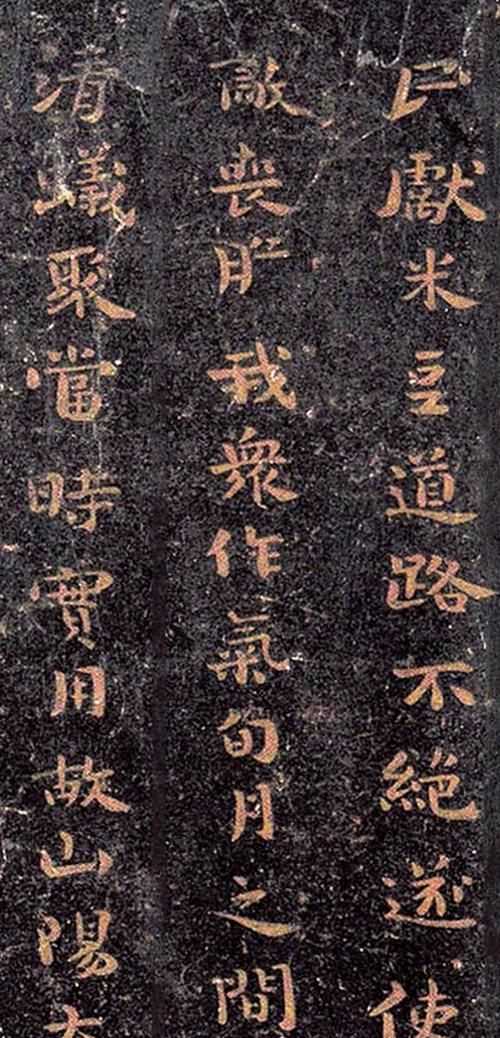 民獻米豆道路不絶遂使
敵喪膽我衆作氣旬月之間
清蟻聚當時實用故山陽太